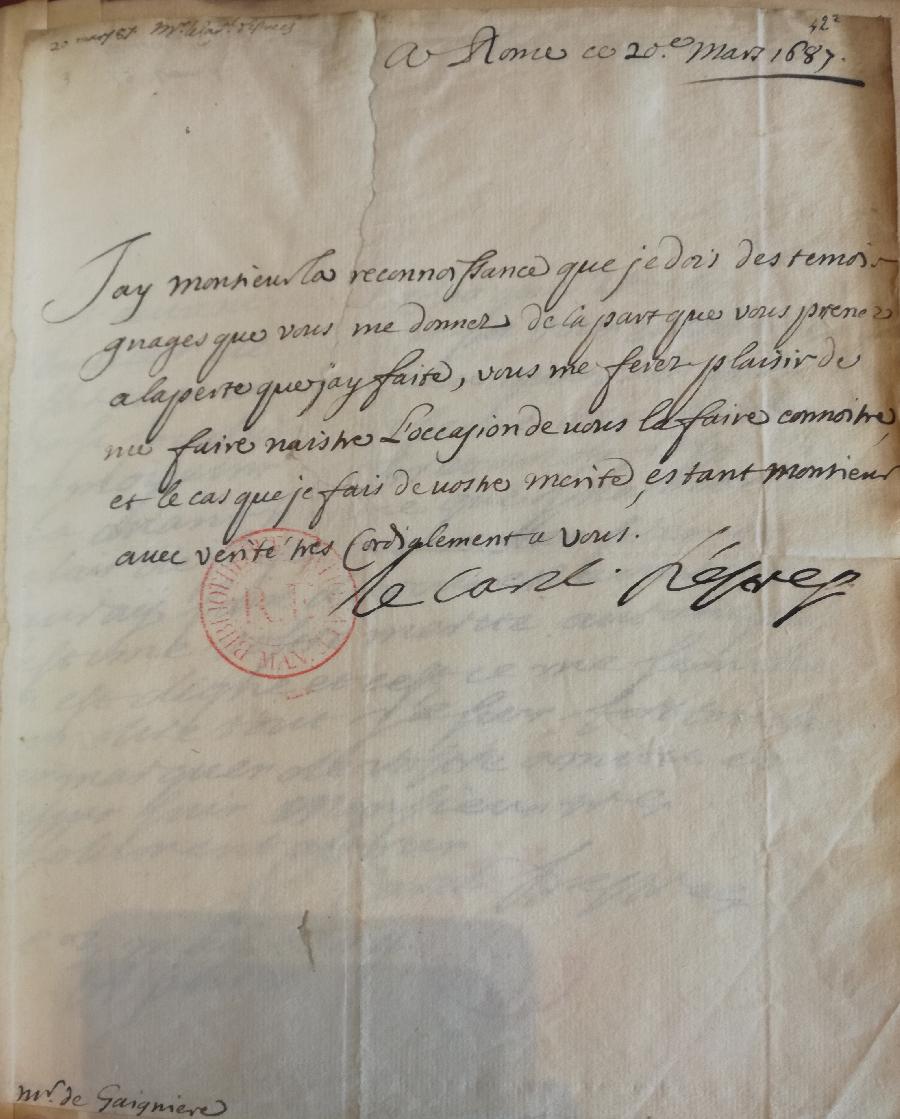 20 mars 87 Mr le Card. d'Estrees
42²
A Rome ce 20.e Mars 1687.
Jay monsieur la reconnoissance que je dois des temoi-
gnages que vous me donnez de la part que vous prenez
a la perte que jay faite, vous me ferez plaisir de
me faire naistre L'occasion de vous la faire connoitre,
et le cas que je fais de vostre merite, estant monsieur
avec verité tres Cordialement a vous.
le Card. d'Estrees
BIBLIOTHEQUE NATIONALE MAN. RF
mr. de Gaigniere